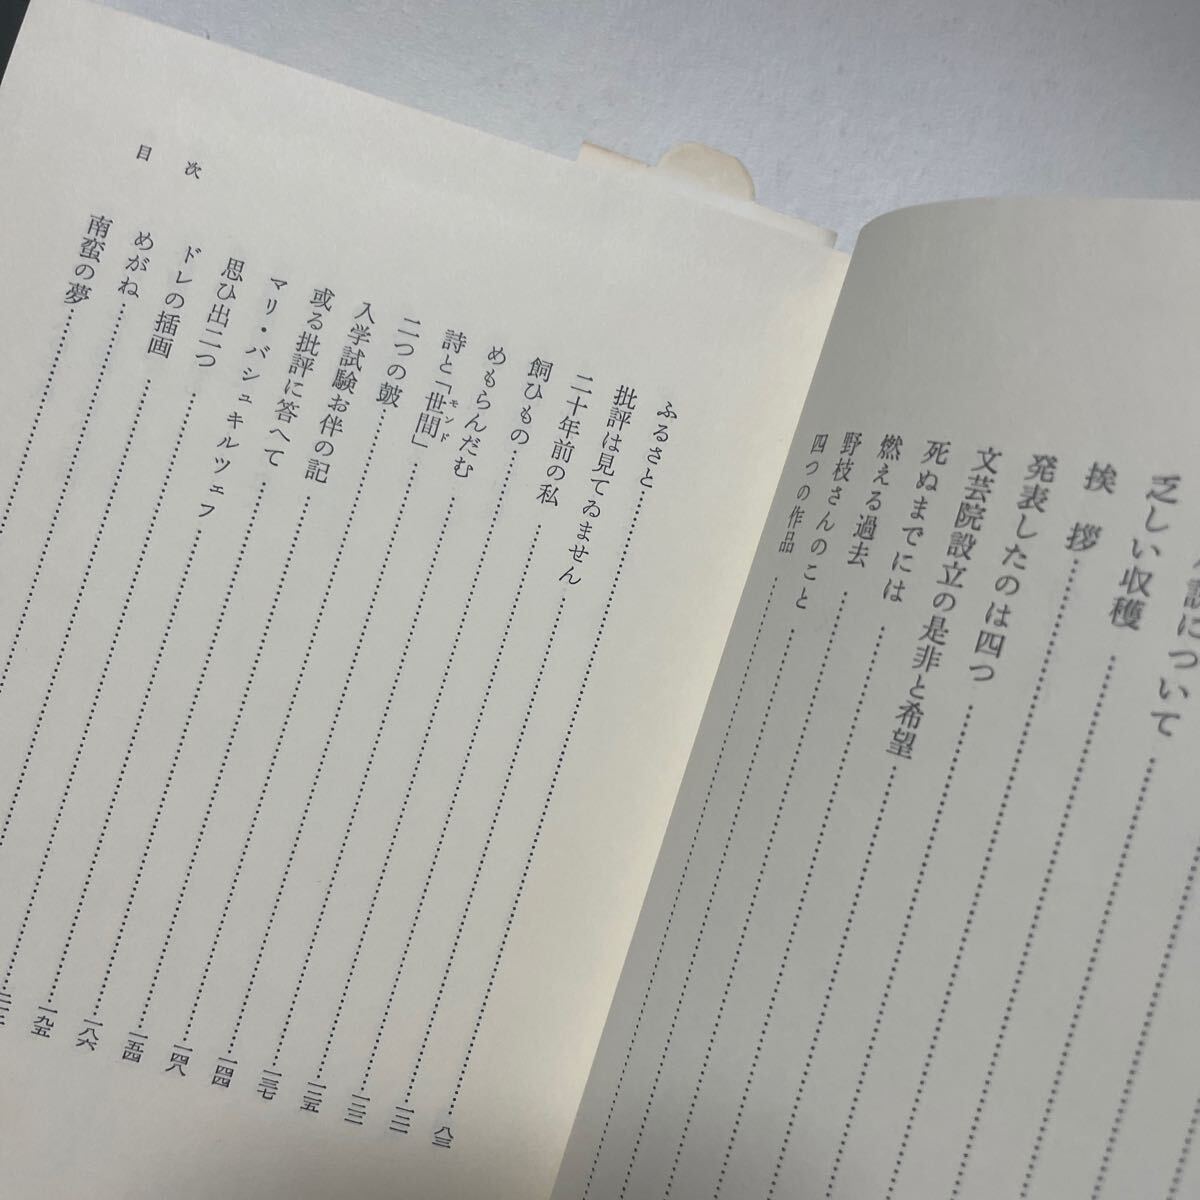 説について
乏しい収穫
挨拶
発表したのは四つ
文芸院設立の是非と希望
死ぬまでには
燃える過去
野枝さんのこと
四つの作品
ふるさと……八三
批評は見てゐません……
二十年前の私……
飼ひもの……一三五
めもらんだむ……一三七
詩と「世間」モンド……一四四
二つの鼓……一四八
入学試験お伴の記……一五四
或る批評に答へて……一八六
マリ・バシュキルツェフ……一九五
思ひ出二つ……
ドレの插画……
めがね……
南蛮の夢……
目次